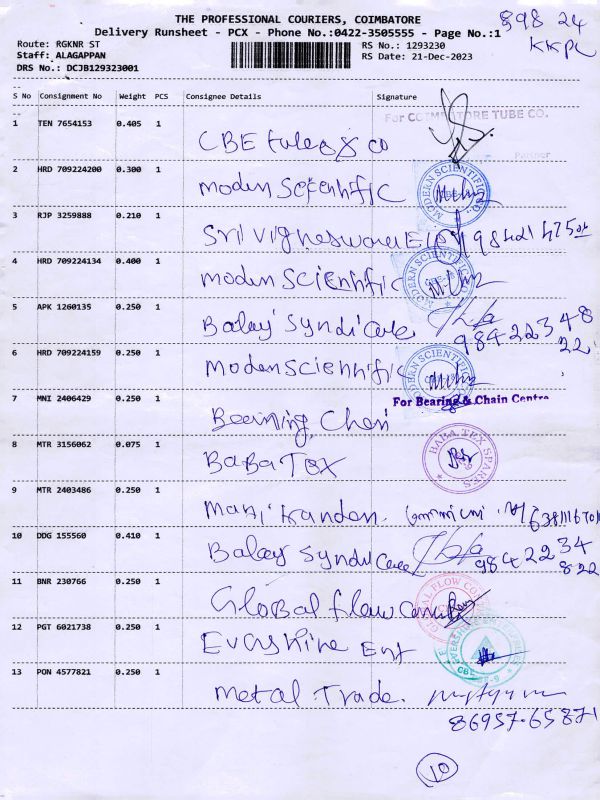 THE PROFESSIONAL COURIERS, COIMBATORE
898 24
KKPL
Delivery Runsheet - PCX - Phone No.:0422-3505555 - Page No.:1
Route: RGKNR ST
RS No.: 1293230
Staff: ALAGAPPAN
RS Date: 21-Dec-2023
DRS No.: DCJB129323001
S No Consignment No Weight PCS Consignee Details Signature
For COIMBATORE TUBE CO.
1 TEN 7654153 0.405 1
CBE tubes & co
Partner
2 HRD 709224200 0.300 1
Modern Scientific
MODERN SCIENTIFIC CO.
3 RJP 3259888 0.210 1
Sri Vigneswara
4 HRD 709224134 0.400 1
Modern Scientific
MODERN SCIENTIFIC
5 APK 1260135 0.250 1
Balaji Syndicate
98422348
22
6 HRD 709224159 0.250 1
Modern Scientific
MODERN SCIENTIFIC
7 MNI 2406429 0.250 1
For Bearing & Chain Centre
Bearning Chen
8 MTR 3156062 0.075 1
BaBa Tex
BABA TEX SPARES
9 MTR 2403486 0.250 1
Manikandan
10 DDG 155560 0.410 1
Balaji Syndicate
9842234
822
11 BNR 230766 0.250 1
Global flow
GLOBAL FLOW
12 PGT 6021738 0.250 1
Evershine Ent
CBE-9
13 PON 4577821 0.250 1
Metal Trade.
86957.65871
10